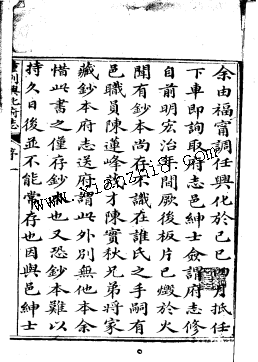 余由福甯調任興化於己巳四月抵任
下車即詢取府志邑紳士僉謂府志修
自前明宏治年間厥後板片已燬於火
聞有鈔本尚存不識在誰氏之手嗣有
邑職員陳蓮峰茂才陳實秋兄弟將家
藏鈔本府志送府謂此外別無他本余
惜此書之僅存鈔本也又恐鈔本難以
持久日後並不能常存也因與邑紳士
重刊興化府志